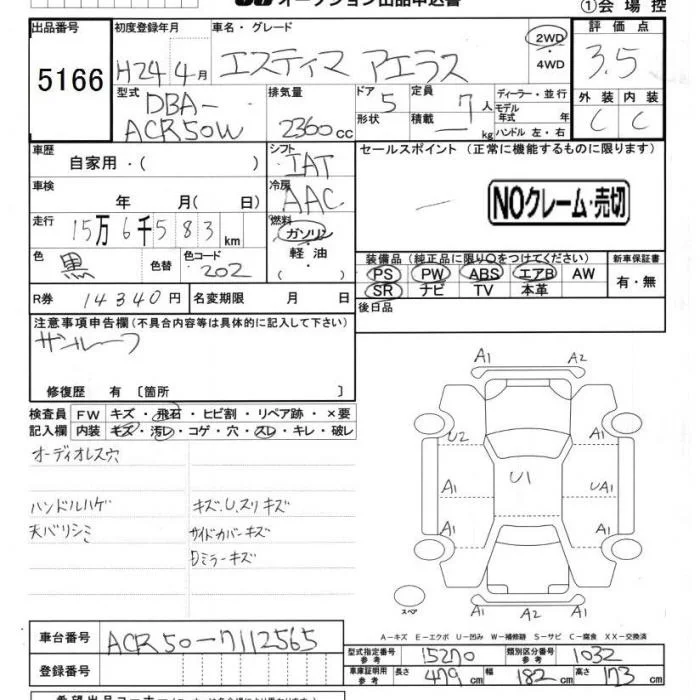 オークション出品申込書
①会場控
出品番号 初度登録年月 車名・グレード 2WD 評価点
5166 H24 4月 エスティマ アエラス ・4WD 3.5
型式 排気量 ドア 定員 ディーラー・並行 外装 内装
DBA-ACR50W 2360cc 5 7人 モデル年式 年 C C
形状 積載 — kg ハンドル 左・右
車歴 シフト セールスポイント (正常に機能するものに限ります)
自家用・( ) IAT
車検 冷房
年 月( 日) AAC — NOクレーム・売切
走行 燃料
15万6千583km ガソリン
色 色コード 軽油
黒 色替 202 ( ・ )
装備品 (純正品に限り○をつけてください) 新車保証書
PS PW ABS エアB AW 有・無
SR ナビ TV 本革
R券 14340円 名変期限 月 日
後日品
注意事項申告欄(不具合内容等は具体的に記入して下さい)
サンルーフ
修復歴 有 〔箇所 〕
検査員 FW キズ・飛石・ヒビ割・リペア跡・×要
記入欄 内装 キズ・汚レ・コゲ・穴・スレ・キレ・破レ
オーディオレス穴
ハンドルハゲ キズ.U.スリキズ
天バリシミ サイドカバーキズ
Dミラーキズ
A1 A2
U2 A1
U1
A1 UA1
A1 A1
A1 A2
スペア
A−キズ E−エクボ U−凹み W−補修跡 S−サビ C−腐食 XX−交換済
車台番号 ACR50-7112565
型式指定番号 参考 15270 類別区分番号 参考 1032
登録番号
車庫証明用 参考 長さ 479cm 幅 182cm 高さ 173cm
希望出品コーナー